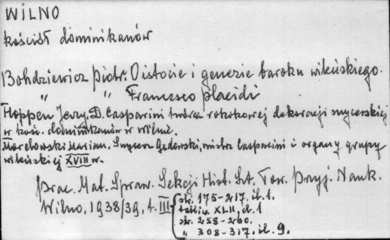 WILNO
kościół dominikanów
Bohdziewicz Piotr. O istocie i genezie baroku wileńskiego.
" " Francesco Placidi
Hoppen Jerzy. D. Casparini twórca rokokowej dekoracji snycerskiej
w kośc. dominikanów w Wilnie.
Morelowski Marian. Snycerz Gederski, mistrz Casparini i organy grupy
wileńskiej XVIII w.
Prac. Mat. Spraw. Sekcji Hist. Szt. Tow. Przyj. Nauk.
Wilno, 1938/39, t. III
str. 175-217, il. 1.
tablica XLII, il. 1
str. 258-260.
" 308-317, il. 9.